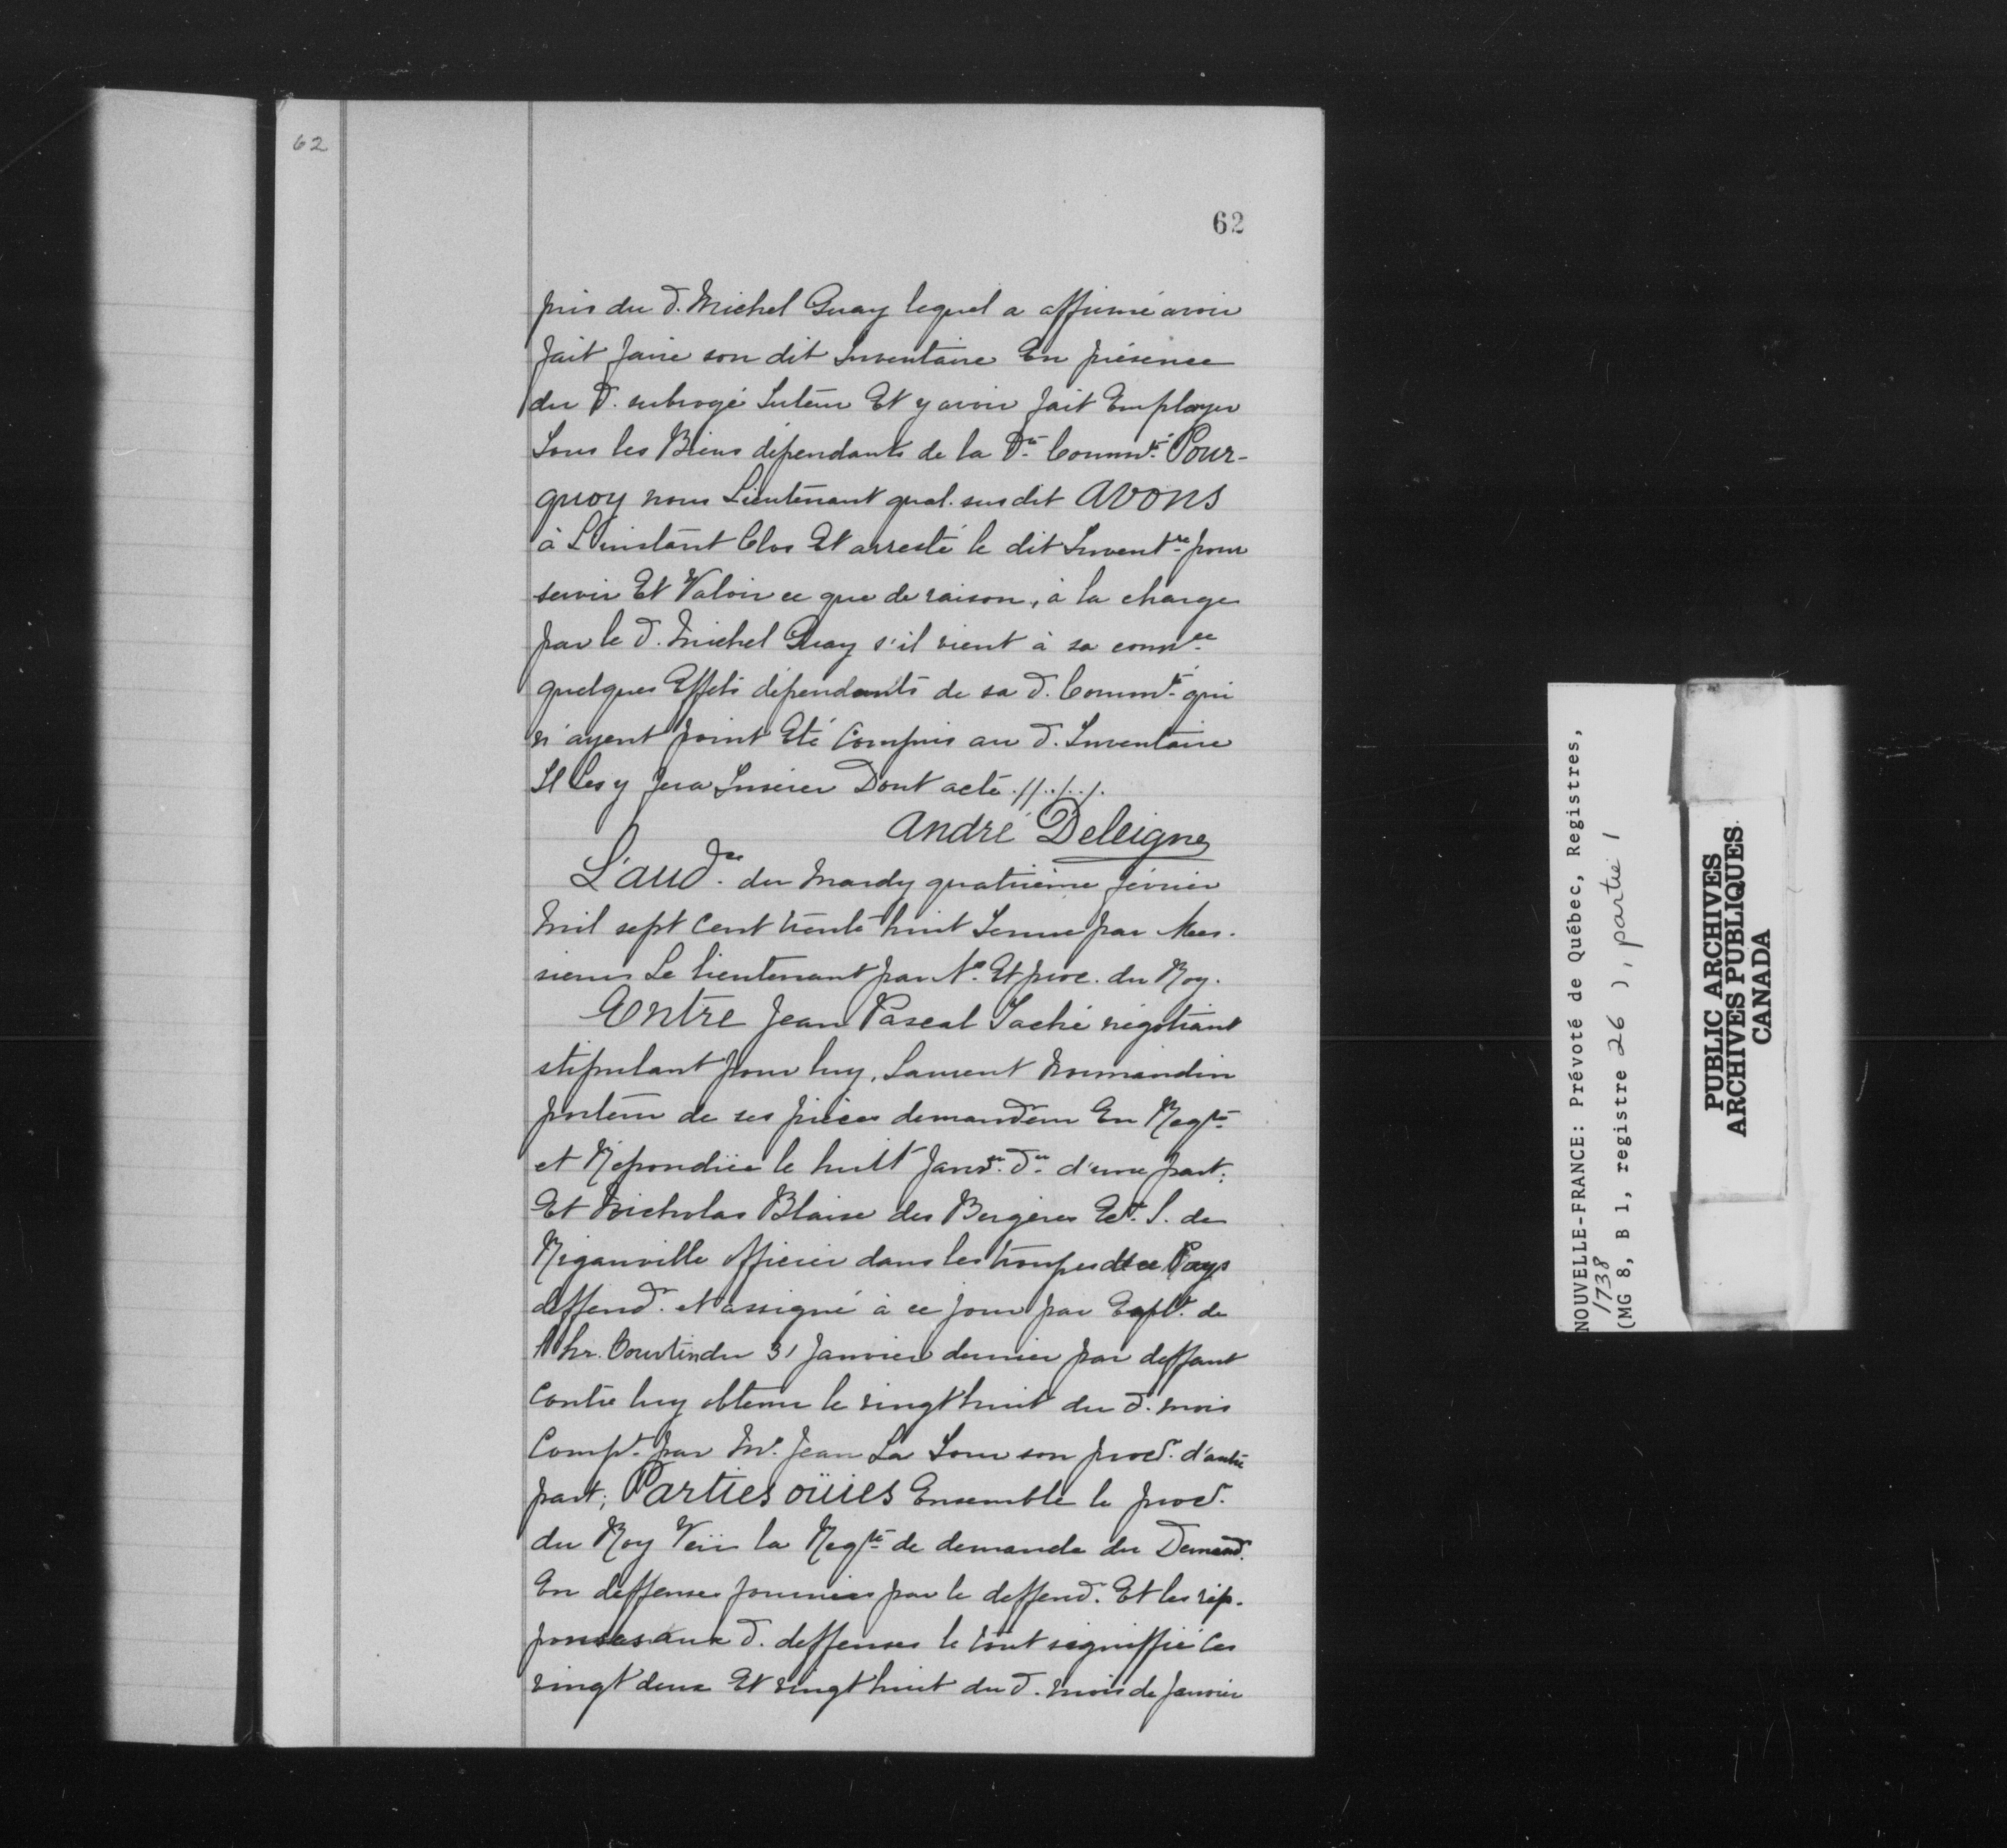 62
62
pris du d. Michel Guay lequel a affirmé avoir
fait faire son dit Inventaire En présence
du d. subrogé Tuteur Et y avoir fait Employer
Tous les Biens dépendants de la de. Commté. Pour-
quoy nous Lieutenant qual. susdit avons
à L'instant Clos Et arresté le dit Inventre. pour
servir Et Valoir ce que de raison, à la charge
par le d. Michel Guay s'il vient à sa connce.
quelques Effets dépendants de sa d. Commté. qui
n'ayent point Eté Compris au d. Inventaire
Il Les y fera Inserer Dont acte .//../../.
André Deleigne
L'audce. du Mardy quatrième février
Mil sept Cent trente huit Tenue par Mes-
sieurs Le lieutenant par Nr. Et proc. du Roy.
Entre Jean Pascal Taché négotiant
stipulant pour luy, Laurent Normandin
porteur de ses pièces demandeur En Reqte.
et Répondüe le huit Janvr. dr. d'une part;
Et Nicholas Blaise des Bergères Ecr. S. de
Riganville officier dans les troupes de ce Pays
deffendr. et assigné à ce jour par Explt. de
l'hr. Courtin du 31 Janvier dernier par deffaut
Contre luy obtenu le vingt huit du d. mois
Compt. par Me. Jean La Tour son procr. d'autre
part; Parties oüies Ensemble le procr.
du Roy Veü la Reqte. de demande du Demandr.
En deffenses fournies par le deffendr. Et les rép-
ponses aux d. deffenses le tout signiffié les
vingt deux Et vingt huit du d. mois de Janvier
NOUVELLE-FRANCE: Prévoté de Québec, Registres,
1738
(MG 8, B 1, registre 26 ), partie 1
PUBLIC ARCHIVES
ARCHIVES PUBLIQUES
CANADA